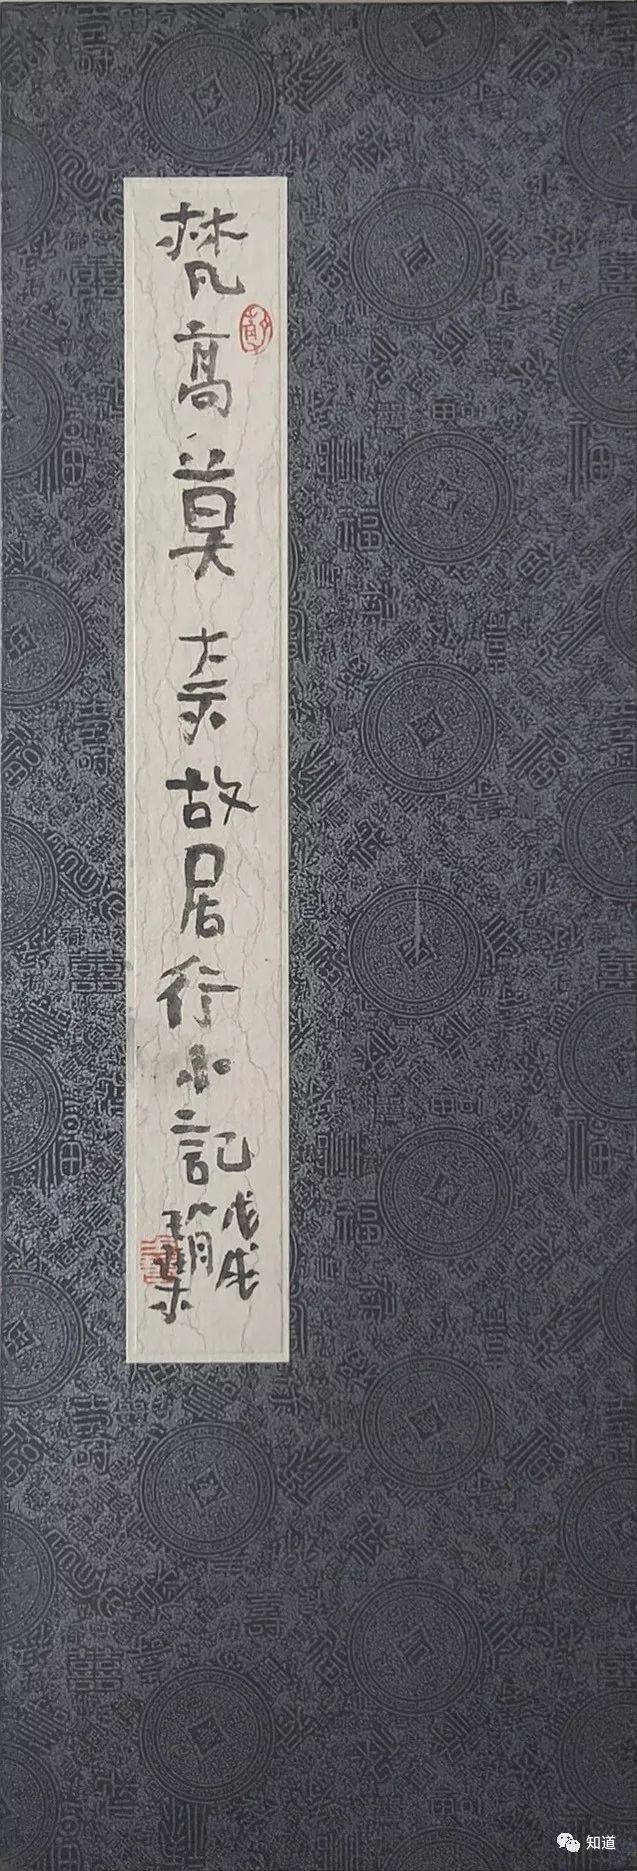 梵高莫奈故居行小記
戊戌
知道